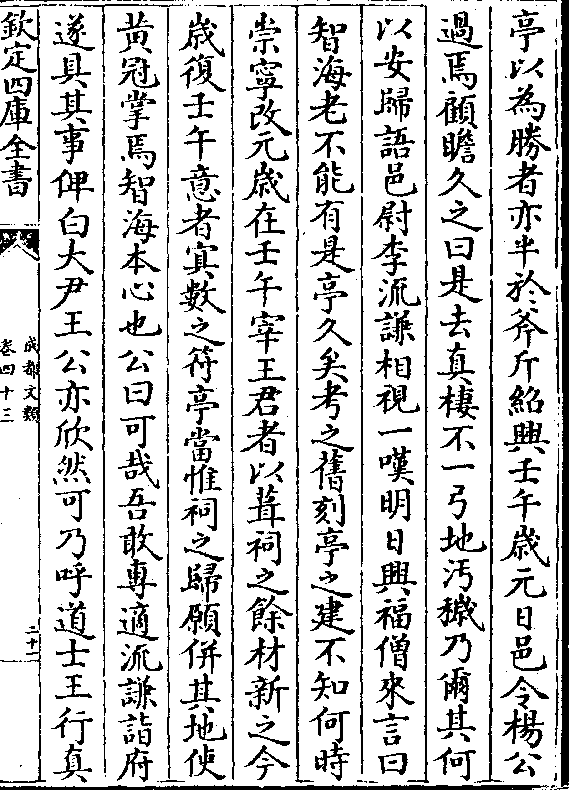 亭以為勝者亦半於斧斤紹興壬午歲元日邑令楊公
過焉顧瞻久之曰是去真棲不一弓地汚穢乃爾其何
以安歸語邑尉李流謙相視一嘆明日興福僧來言曰
智海老不能有是亭久矣考之舊刻亭之建不知何時
崇寧改元歲在壬午宰王君者以葺祠之餘材新之今
歲復壬午意者寘數之符亭當惟祠之歸願併其地使
黃冠掌焉智海本心也公曰可哉吾敢專適流謙詣府
遂具其事俾白大尹王公亦欣然可乃呼道士王行真
欽定四庫全書
成都文類
卷四十三
二十二